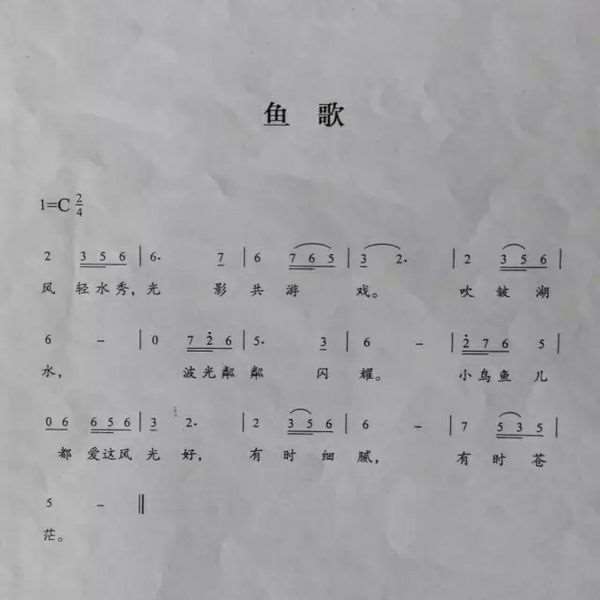 鱼 歌
1=C 2/4
2 3 5 6 | 6. 7 | 6 7 6 5 | 3 2. | 2 3 5 6 |
风 轻水秀，光 影 共 游 戏。 吹 皱 湖
6 – | 0 7 2̇ 6 | 5. 3 | 6 – | 2̇ 7 6 5 |
水， 波光粼 粼 闪 耀。 小鸟鱼 儿
0 6 6 5 6 | 3 2. | 2 3 5 6 | 6 – | 7 5 3 5 |
都 爱这风 光 好， 有 时 细 腻， 有 时 苍
5 – ‖
茫。